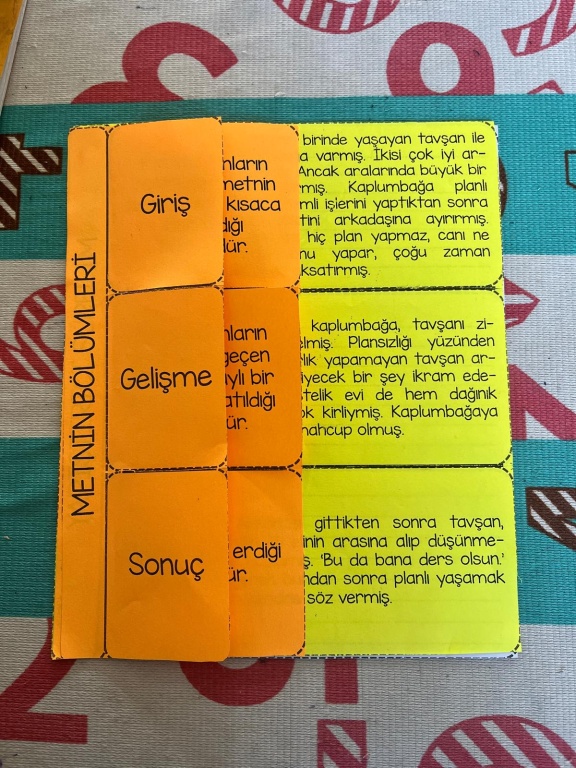 METNİN BÖLÜMLERİ
Giriş
metnin
kısaca
birinde yaşayan tavşan ile
varmış. İkisi çok iyi ar-
Ancak aralarında büyük bir
Kaplumbağa planlı
işlerini yaptıktan sonra
arkadaşına ayırırmış.
hiç plan yapmaz, canı ne
yapar, çoğu zaman
Gelişme
geçen
bir
kaplumbağa, tavşanı zi-
Plansızlığı yüzünden
yapamayan tavşan ar-
bir şey ikram ede-
evi de hem dağınık
kirliymiş. Kaplumbağaya
mahcup olmuş.
Sonuç
erdiği
gittikten sonra tavşan,
arasına alıp düşünme-
'Bu da bana ders olsun.'
sonra planlı yaşamak
söz vermiş.